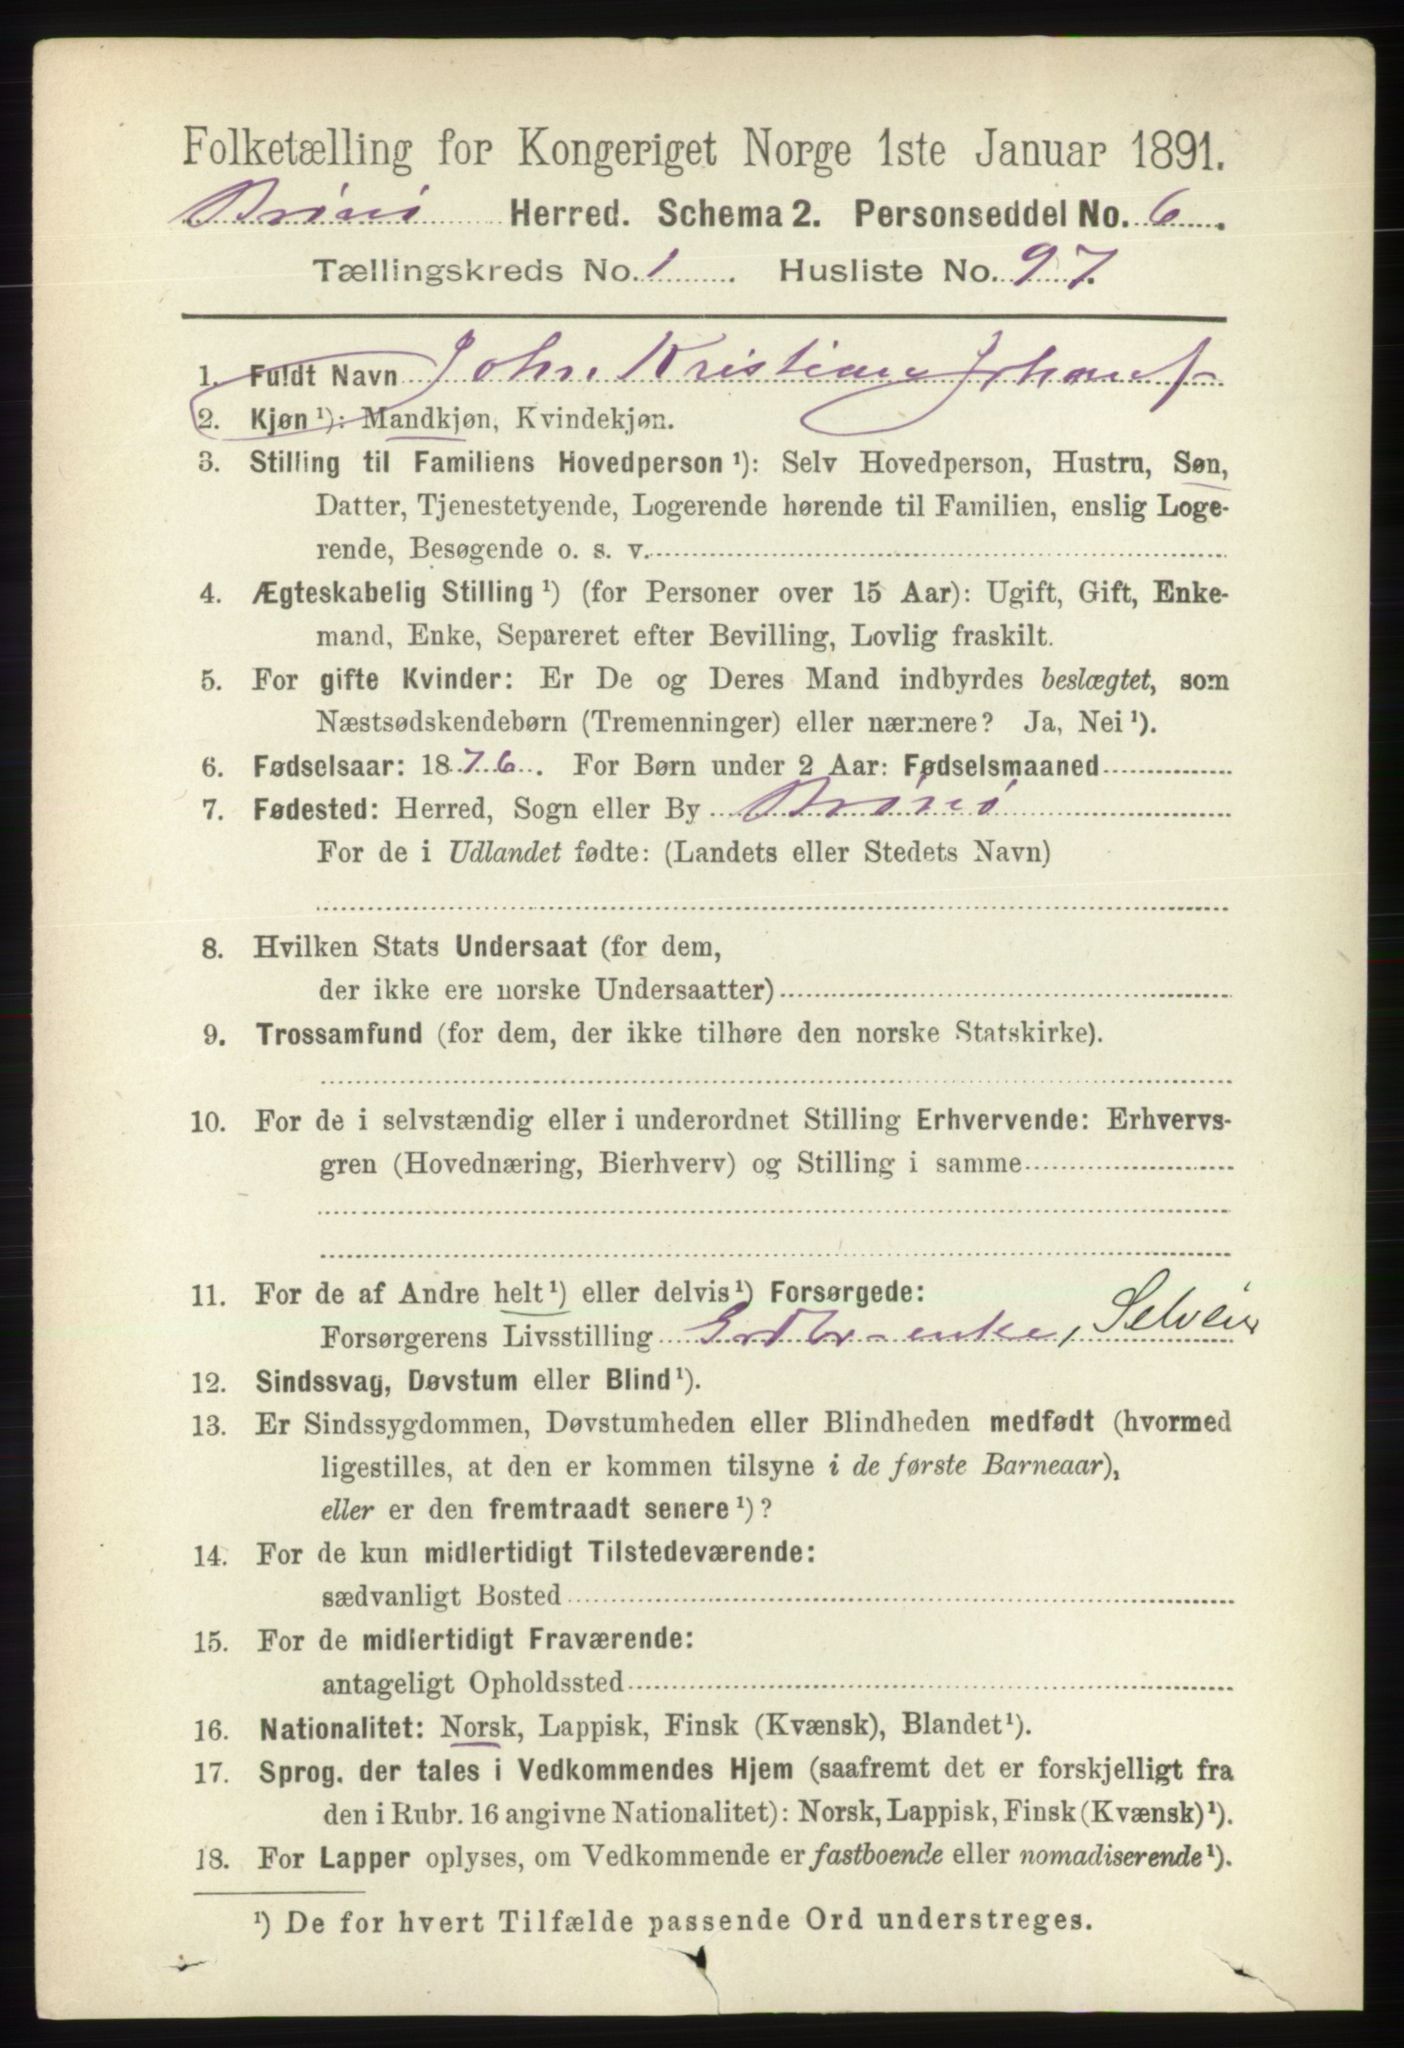 Folketælling for Kongeriget Norge 1ste Januar 1891.
Brönö Herred. Schema 2. Personseddel No. 6.
Tællingskreds No. 1. Husliste No. 97.
1. Fuldt Navn John Kristian Johans
2. Kjøn ¹): Mandkjøn, Kvindekjøn.
3. Stilling til Familiens Hovedperson ¹): Selv Hovedperson, Hustru, Søn,
Datter, Tjenestetyende, Logerende hørende til Familien, enslig Loge-
rende, Besøgende o. s. v.
4. Ægteskabelig Stilling ¹) (for Personer over 15 Aar): Ugift, Gift, Enke-
mand, Enke, Separeret efter Bevilling, Lovlig fraskilt.
5. For gifte Kvinder: Er De og Deres Mand indbyrdes beslægtet, som
Næstsødskendebørn (Tremenninger) eller nærmere? Ja, Nei ¹).
6. Fødselsaar: 1876. For Børn under 2 Aar: Fødselsmaaned
7. Fødested: Herred, Sogn eller By Brönö
For de i Udlandet fødte: (Landets eller Stedets Navn)
8. Hvilken Stats Undersaat (for dem,
der ikke ere norske Undersaatter)
9. Trossamfund (for dem, der ikke tilhøre den norske Statskirke).
10. For de i selvstændig eller i underordnet Stilling Erhvervende: Erhvervs-
gren (Hovednæring, Bierhverv) og Stilling i samme
11. For de af Andre helt ¹) eller delvis ¹) Forsørgede:
Forsørgerens Livsstilling Grdbr-enke, Selveier
12. Sindssvag, Døvstum eller Blind ¹).
13. Er Sindssygdommen, Døvstumheden eller Blindheden medfødt (hvormed
ligestilles, at den er kommen tilsyne i de første Barneaar),
eller er den fremtraadt senere ¹)?
14. For de kun midlertidigt Tilstedeværende:
sædvanligt Bosted
15. For de midlertidigt Fraværende:
antageligt Opholdssted
16. Nationalitet: Norsk, Lappisk, Finsk (Kvænsk), Blandet ¹).
17. Sprog, der tales i Vedkommendes Hjem (saafremt det er forskjelligt fra
den i Rubr. 16 angivne Nationalitet): Norsk, Lappisk, Finsk (Kvænsk) ¹).
18. For Lapper oplyses, om Vedkommende er fastboende eller nomadiserende ¹).
¹) De for hvert Tilfælde passende Ord understreges.